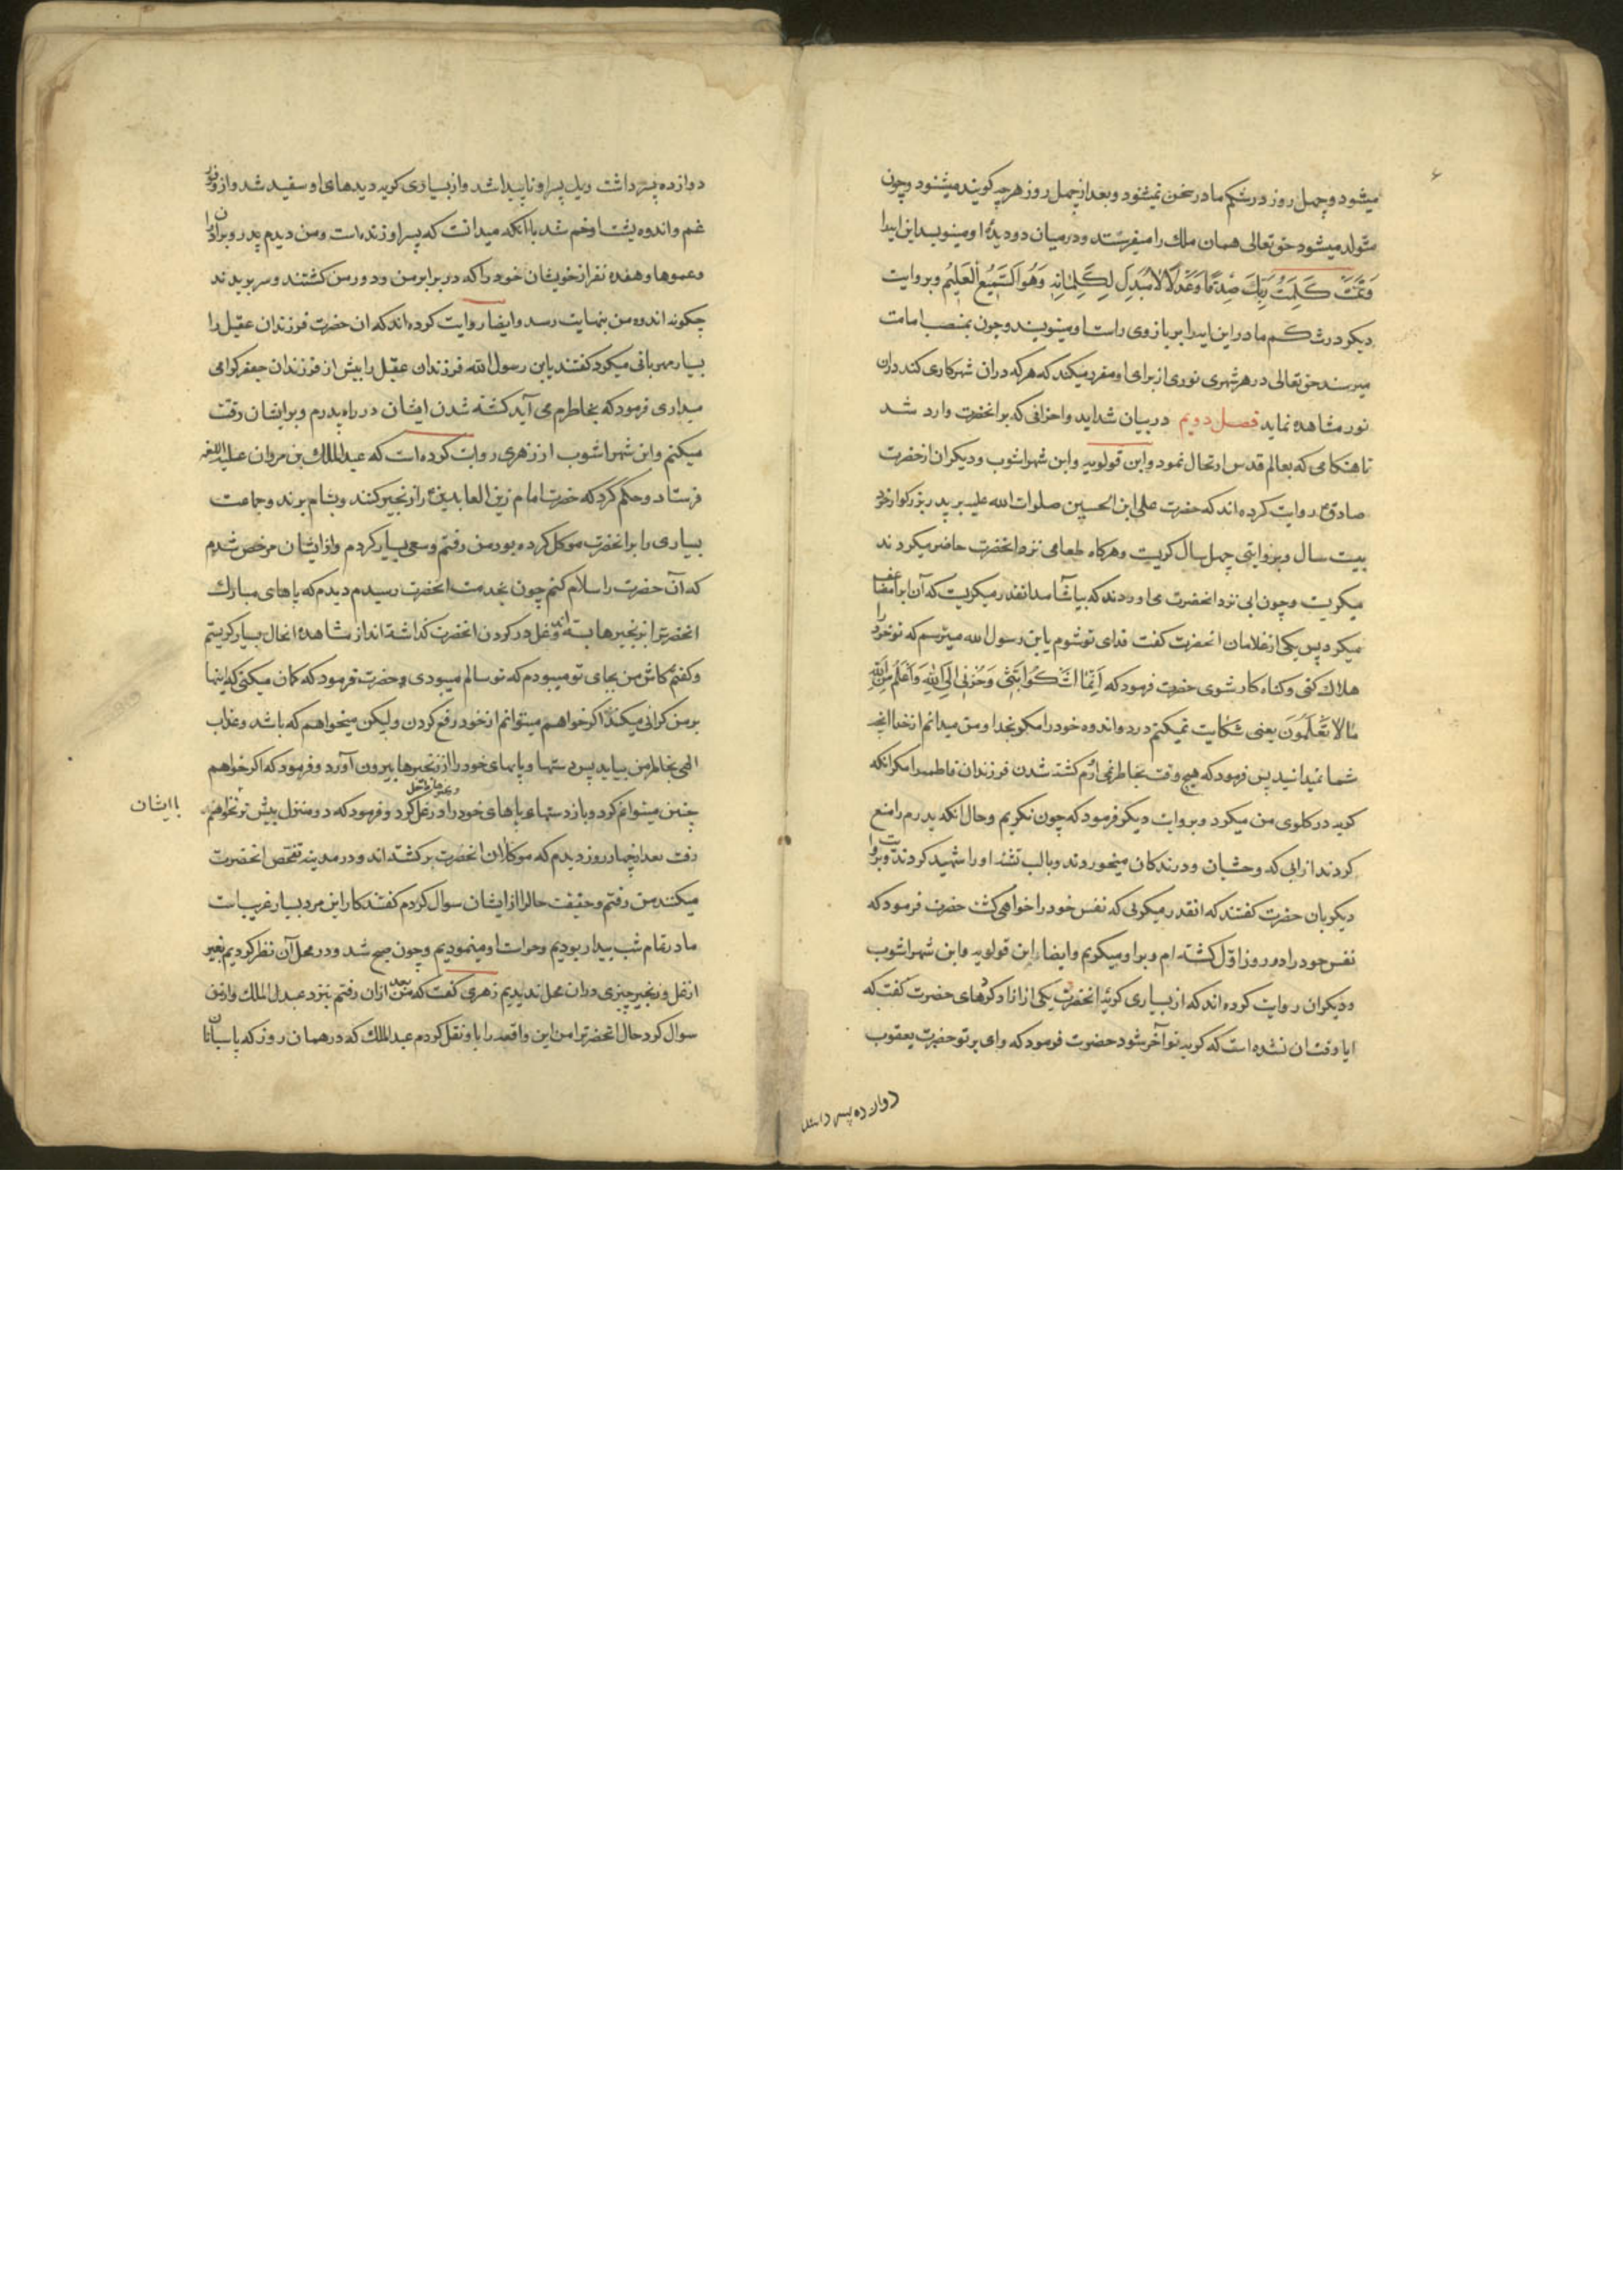 ۶
میشود و چهل روز در شکم مادر سخن نمیشنود و بعد از چهل روز هرچه گویند میشنود و چون
متولد میشود حق تعالی همان ملک را میفرستد و در میان دو دیدهٔ او مینویسد این ایه را
وَتَمَّتْ كَلِمَتُ رَبِّكَ صِدْقًا وَعَدْلًا لَا مُبَدِّلَ لِكَلِمَاتِهِ وَهُوَ السَّمِيعُ الْعَلِيمُ و بروایت
دیکر در شکم مادر این ایه را بر بازوی راست او مینویسند و چون بمنصب امامت
میرسد حق تعالی در هر شهری نوری از برای او مقرر میکند که هر که در ان شهر کاری کند در ان
نور مشاهده نماید فصل دویم در بیان شداید و احزانی که بر انحضرت وارد شد
تا هنکامی که بعالم قدس ارتحال نمود و ابن قولویه و ابن شهراشوب و دیکران از حضرت
صادق ع روایت کرده اند که حضرت علی ابن الحسین صلوات الله علیه بر پدر بزرکوار خود
بیست سال و بروایتی چهل سال کریست و هرکاه طعامی نزد انحضرت حاضر میکردند
میکریست و چون ابی نزد انحضرت می اوردند که بیاشامد انقدر میکریست که آن اب را مضاعف
میکرد پس یکی از غلامان انحضرت کفت فدای تو شوم یابن رسول الله میترسم که تو خود را
هلاک کنی و کناه کار شوی حضرت فرمود که اِنَّمَا اَشْكُوا بَثِّي وَحُزْنِي اِلَى اللهِ وَاَعْلَمُ مِنَ اللهِ
مَا لَا تَعْلَمُونَ یعنی شکایت نمیکنم درد و اندوه خود را مکر بخدا و من میدانم از خدا انچه
شما نمیدانید پس فرمود که هیچ وقت بخاطر نمی ارم کشته شدن فرزندان فاطمه را مکر انکه
کریه در کلوی من میکرد و بروایت دیکر فرمود که چون نکریم و حال انکه پدرم را منع
کردند از ابی که وحشیان و درندکان میخوردند و با لب تشنه او را شهید کردند و بروایت
دیکر بان حضرت کفتند که انقدر میکریی که نفس خود را خواهی کشت حضرت فرمود که
نفس خود را در روز اوّل کشته ام و بر او میکریم و ایضا ابن قولویه و ابن شهراشوب
و دیکران روایت کرده اند که از بسیاری کریهٔ انحضرت یکی از ازاد کردهای حضرت کفت که
ایا وقت ان نشده است که کریه تو آخر شود حضرت فرمود که وای بر تو حضرت یعقوب
دوازده پسر داشت
دوازده پسر داشت و یک پسر او ناپیدا شد و از بسیاری کریه دیدهای او سفید شد و از وفور
غم و اندوه پشت او خم شد با آنکه میدانست که پسر او زنده است و من دیدم پدر و برادران
و عموها و هفده نفر از خویشان خود را که در برابر من و دور من کشتند و سر بریدند
چکونه اندوه من بنهایت رسد و ایضا روایت کرده اند که ان حضرت فرزندان عقیل را
بسیار مهربانی میکرد کفتند یابن رسول الله فرزندان عقیل را بیش از فرزندان جعفر کرامی
میداری فرمود که بخاطرم می آید کشته شدن ایشان در راه پدرم و بر ایشان رقت
میکنم و ابن شهراشوب از زهری روایت کرده است که عبدالملک بن مروان علیه اللعنه
فرستاد و حکم کرد که حضرت امام زین العابدین ع را زنجیر کنند و بشام برند و جماعت
بسیاری را بر انحضرت موکل کرده بود من رفتم و سعی بسیار کردم و از ایشان مرخص شدم
که آن حضرت را سلام کنم چون بخدمت انحضرت رسیدم دیدم که پاهای مبارک
انحضرت را بزنجیرها بسته اند و غل در کردن انحضرت کذاشته اند از مشاهدهٔ انحال بسیار کریستم
و کفتم کاش من بجای تو میبودم که تو سالم میبودی حضرت فرمود که کمان میکنی که اینها
بر من کرانی میکند اکر خواهم میتوانم از خود رفع کردن و لیکن میخواهم که باشد و عذاب
الهی بخاطر من بیاید پس دستها و پاهای خود را از زنجیرها بیرون آورد و فرمود که اکر خواهم
چنین میتوانم کرد و باز دستها و پاهای خود را در غل کرد و فرمود که دو منزل بیش تر نخواهم
با ایشان
رفت بعد از چهار روز دیدم که موکلان انحضرت برکشته اند و در مدینه تفحّص انحضرت
میکنند من رفتم و حقیقت حال را از ایشان سوال کردم کفتند کار این مرد بسیار غریب است
ما در تمام شب بیدار بودیم و حراست او مینمودیم و چون صبح شد و در محل آن نظر کردیم بغیر
از غل و زنجیر چیزی در ان محل ندیدیم زهری کفت که من بعد از ان رفتم بنزد عبدالملک و از من
سوال کرد حال انحضرت را من این واقعه را باو نقل کردم عبدالملک که در همان روز که پاسبانان